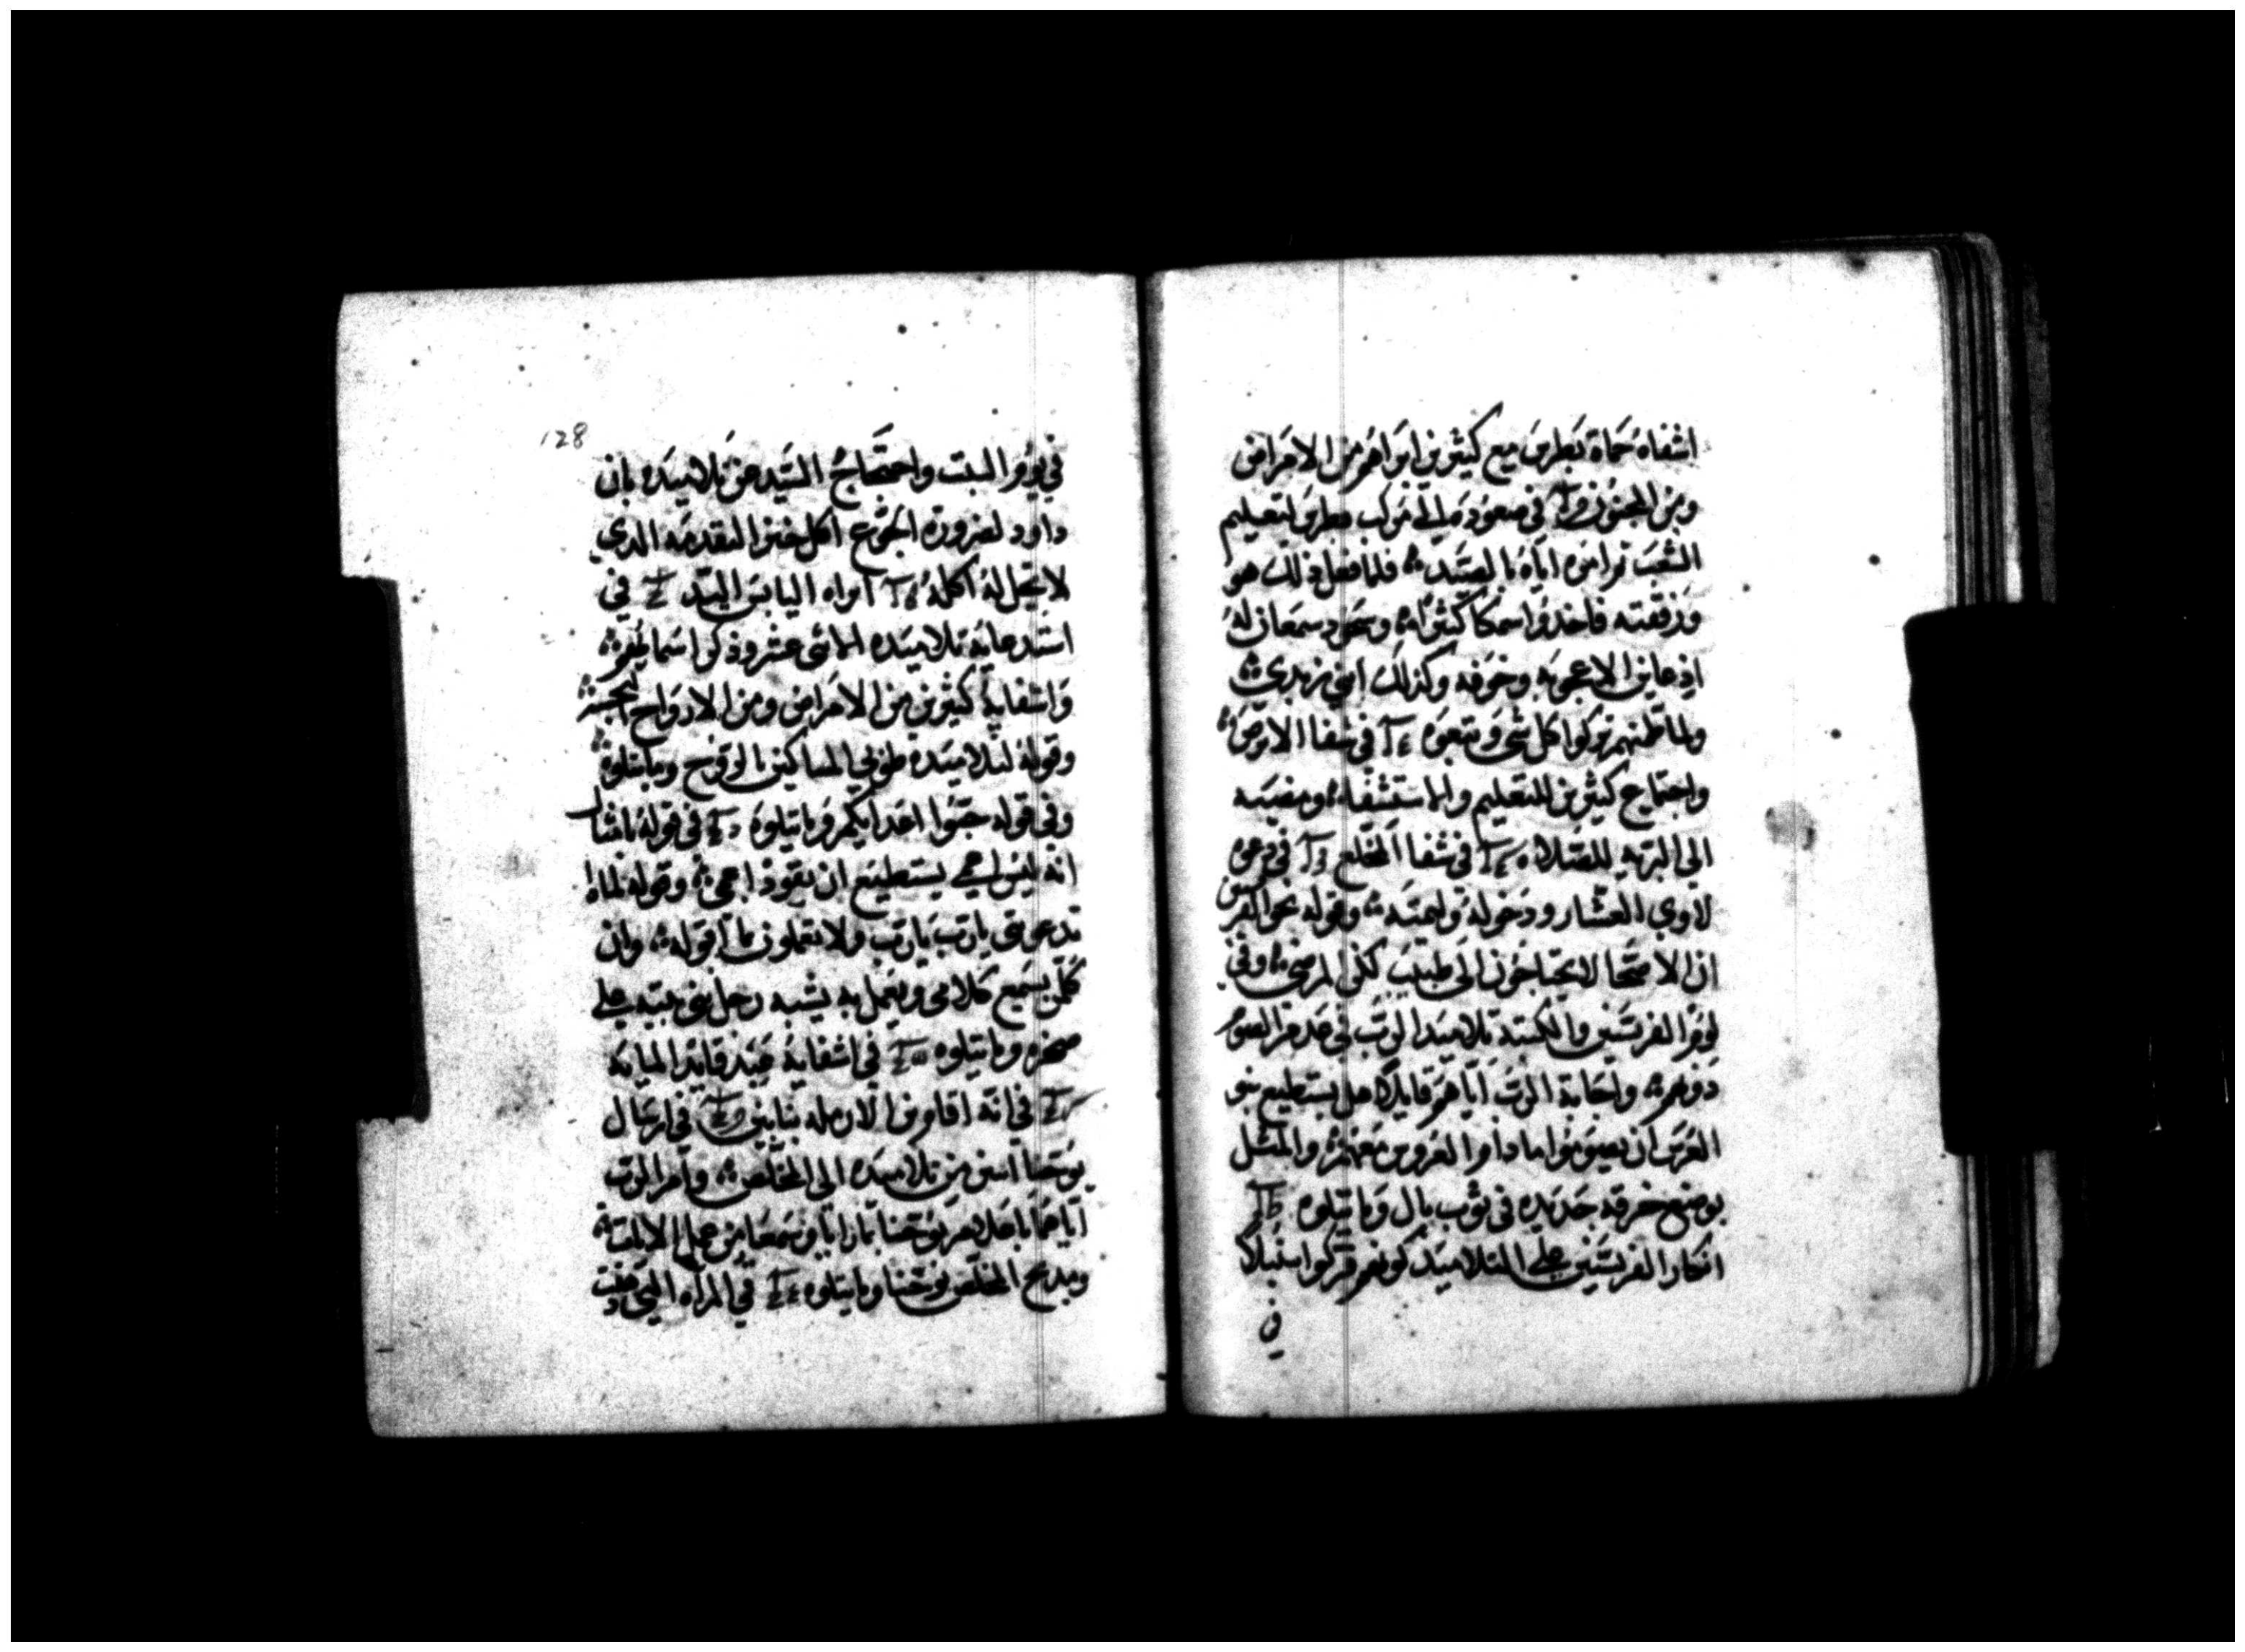 اشفاه حماة بطرس مع كثيرين ابراهم من الامراض
ومن المجنون في صعوده الى مركب بطرس لتعليم
الشعب ثم امره اياه بالصيد فلما فعل ذلك هو
ورفقته فاخدوا سمكا كثيرا وسجود سمعان له
اذ عاين الاعجوبه وخوفه وكذلك ابني زبدي
ولما طمنهم تركوا كل شي وتبعوه في شفا الابرص
واجتماع كثيرين للتعليم والاستشفا ومضيه
الى البريه للصلاه في شفا المخلع في دعوه
لاوي العشار ودخوله وليمته وقوله نحو الفريسيين
ان الاصحا لا يحتاجون الى طبيب لكن المرضى وفي
لوم الفريسين والكتبة تلاميد الرب في عدم الصوم
دونهم واجابة الرب اياهم قايلا هل يستطيع بنو
العرس ان يصوموا ما دام العروس معهم والمثل
بوضع خرقه جديده في ثوب بال وما يتلوه
انكار الفريسين على التلاميد كونهم فركوا سنبلا
في
128
في يوم السبت واحتجاج السيد عن تلاميده بان
داود لضرورة الجوع اكل خبز التقدمه الدي
لا يحل له اكله ابراه اليابس اليد في
استدعايه تلاميده الاثني عشر وذكر اسمايهم
واشفايه كثيرين من الامراض ومن الارواح النجسه
وقوله لتلاميده طوبى المساكين بالروح وما يتلوه
وفي قوله حبوا اعدايكم وما يتلوه في قوله امثال
انه ليس اعمى يستطيع ان يقود اعمى وقوله لمادا
تدعوني يارب يارب ولا تعملون ما اقوله وان
كلمن يسمع كلامي ويعمل به يشبه رجل بنى بيته على
صخره وما يتلوه في اشفايه عبد قايد المايه
في انه اقام ابن الارمله بنايين في ارسال
يوحنا اثنين من تلاميده الى المخلص وامر الرب
اياهما باعلامهم يوحنا بما رايا وسمعا من عمل الايات
ومديح المخلص يوحنا وما يتلوه في المراه التي دهنت